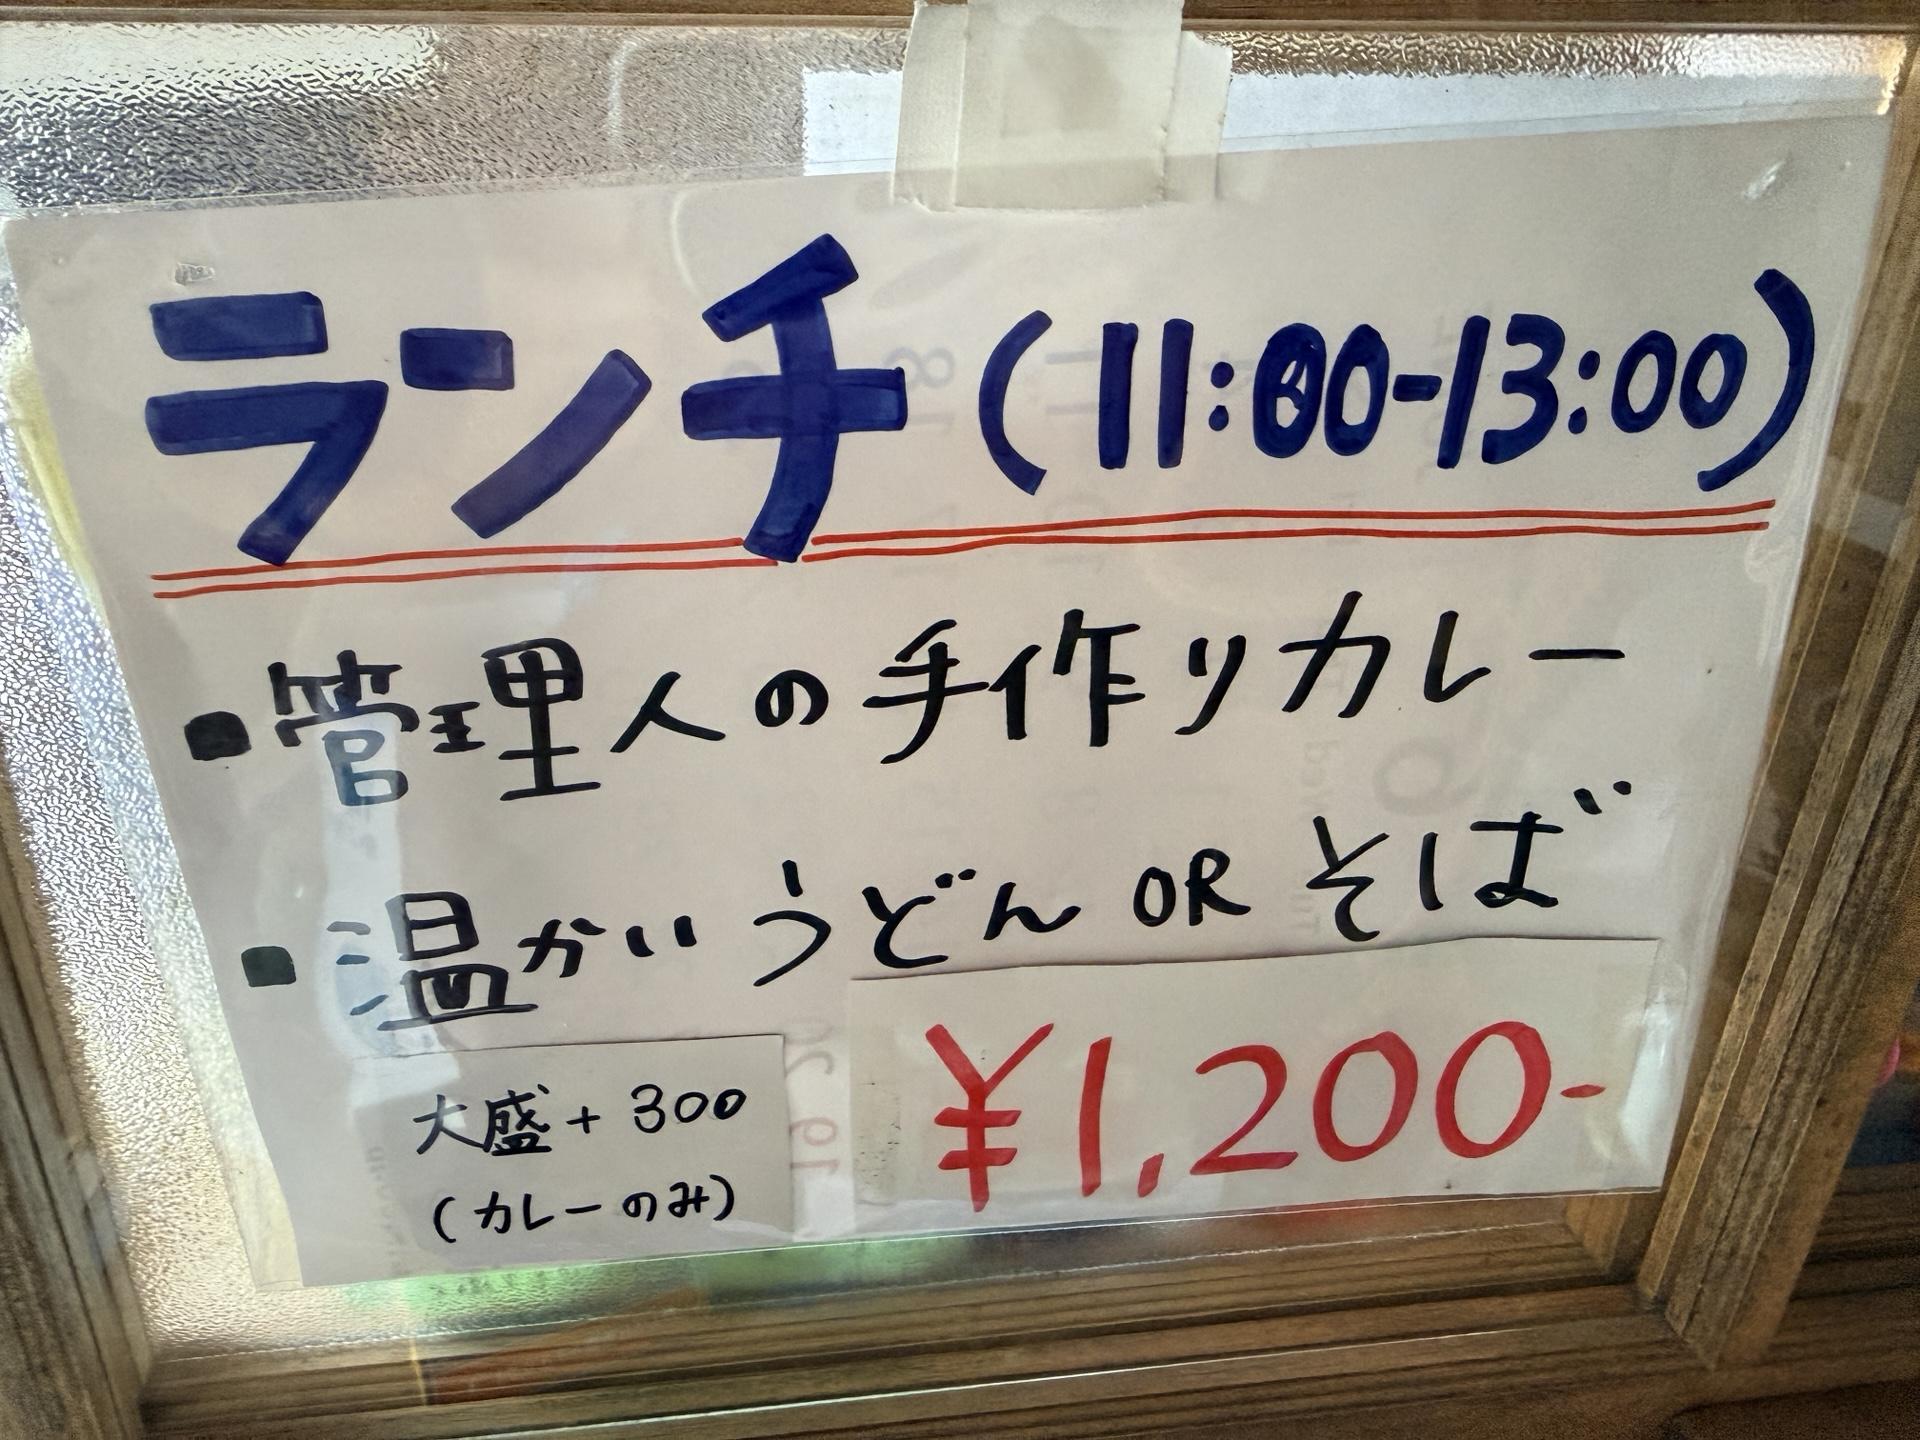 ランチ(11:00-13:00)
・管理人の手作りカレー
・温かいうどん OR そば
大盛+300
(カレーのみ)
¥1,200-